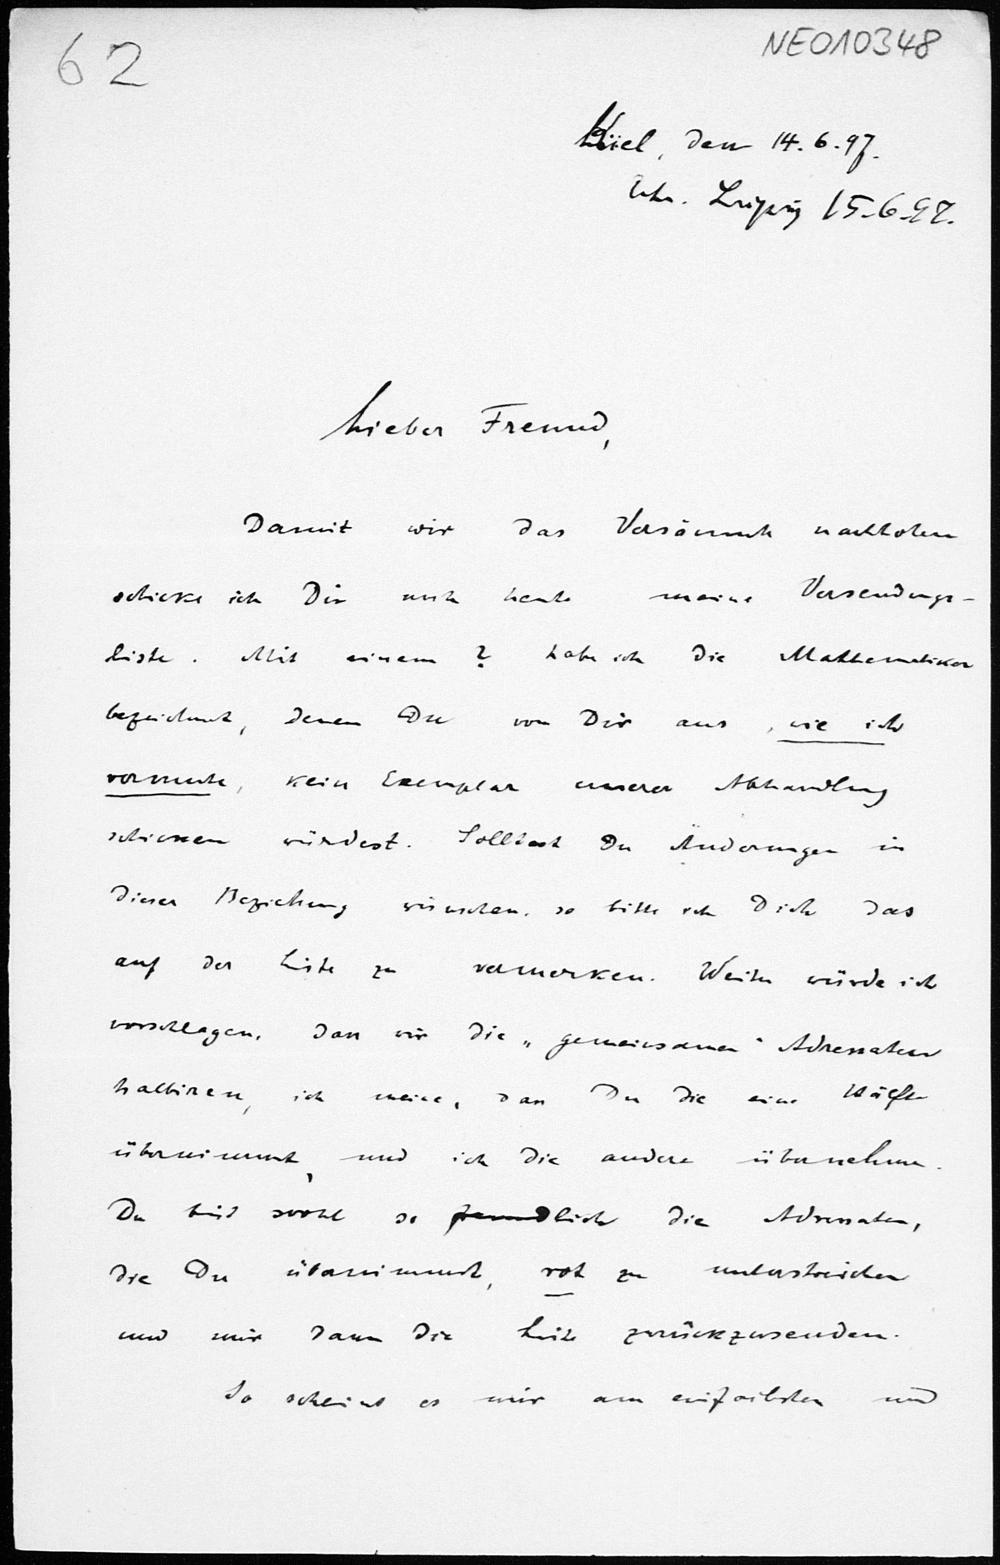 62
NEO10348
Kiel, den 14.6.97.
Leipzig 15.6.97.
Lieber Freund,
Damit wir das Versäumte nachholen
schicke ich Dir noch heute meine Versendungs-
liste. Mit einem ? habe ich die Mathematiker
bezeichnet, denen Du von Dir aus, wie ich
vermute, kein Exemplar unserer Abhandlung
schicken würdest. Solltest Du Änderungen in
dieser Beziehung wünschen, so bitte ich Dich das
auf der Liste zu vermerken. Weiter würde ich
vorschlagen, dass wir die „gemeinsamen“ Adressaten
halbiren, ich meine, dass Du die eine Hälfte
übernimmst, und ich die andere übernehme.
Du bist wohl so freundlich die Adressaten,
die Du übernimmst, rot zu unterstreichen
und mir dann die Liste zurückzusenden.
So scheint es mir am einfachsten und